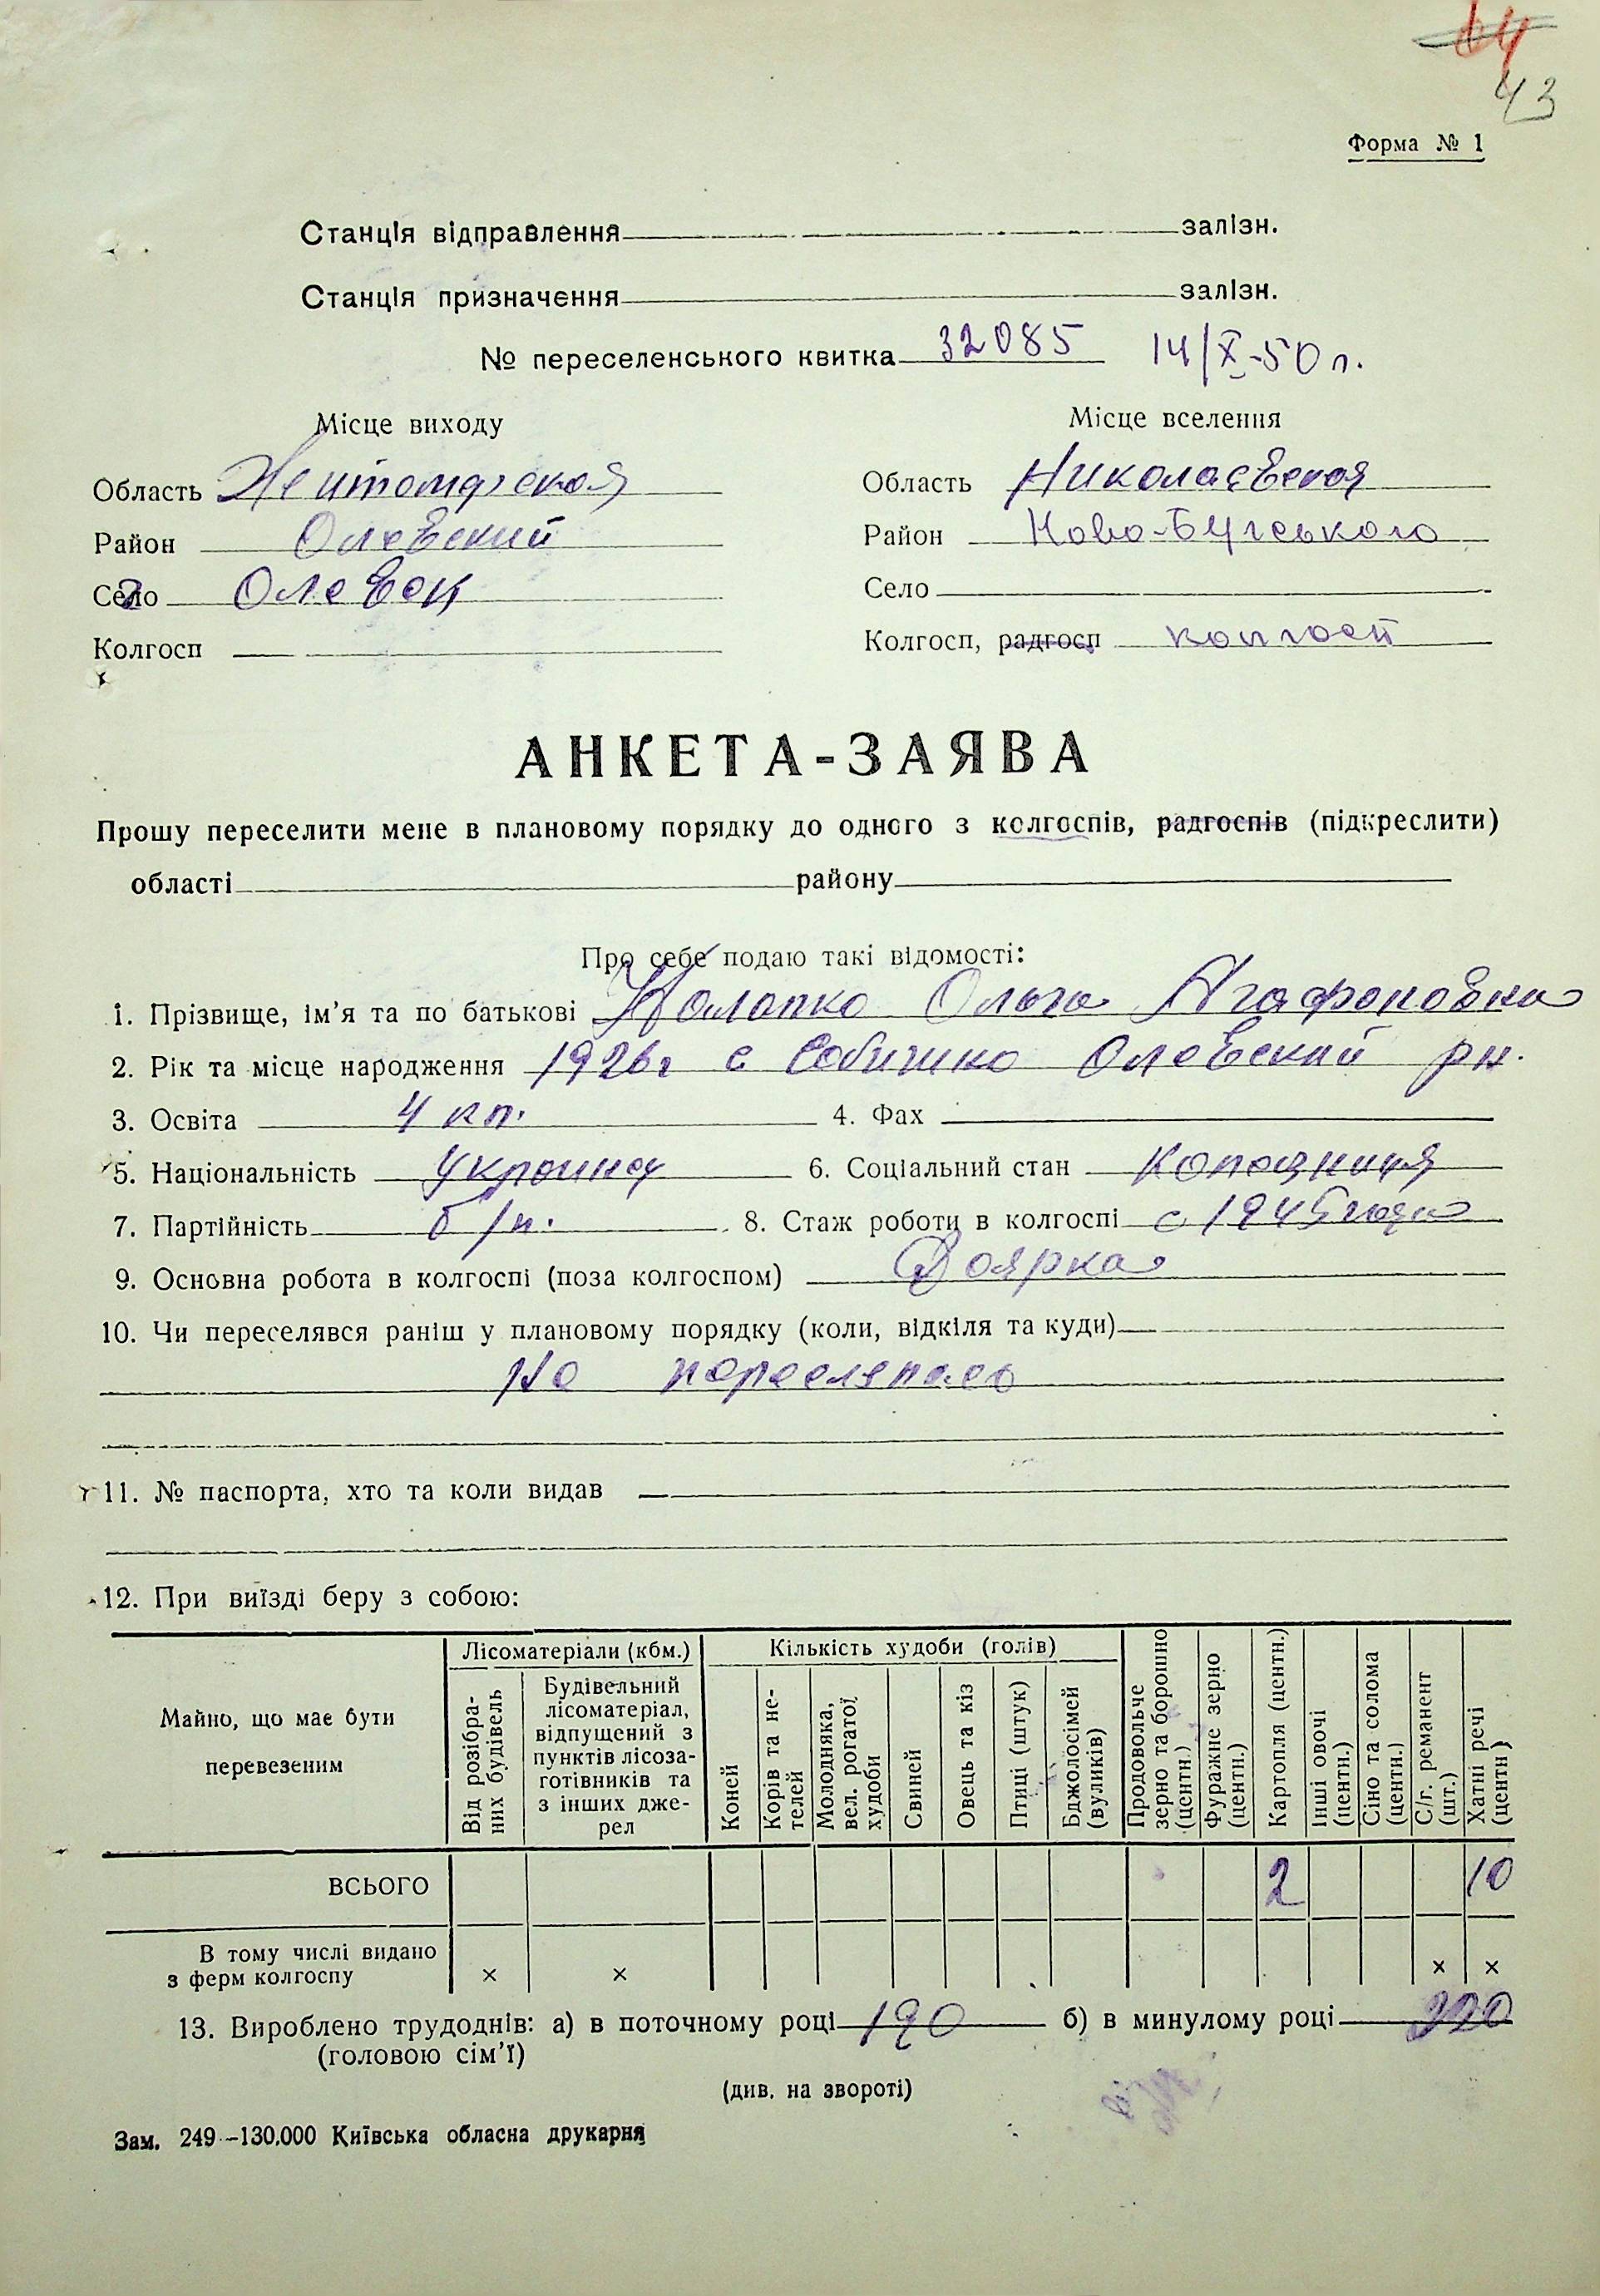 14
43
Форма № 1
Станція відправлення залізн.
Станція призначення залізн.
№ переселенського квитка 32085 14/X-50 р.
Місце виходу
Область Житомирская
Район Олевский
Село Олевск
Колгосп
Місце вселення
Область Николаевская
Район Ново-Бугського
Село
Колгосп, радгосп колгосп
АНКЕТА-ЗАЯВА
Прошу переселити мене в плановому порядку до одного з колгоспів, радгоспів (підкреслити)
області району
Про себе подаю такі відомості:
1. Прізвище, ім’я та по батькові Ольга Агафоновна
2. Рік та місце народження 1926 г с Олевский рн.
3. Освіта 4 кл. 4. Фах
5. Національність украинец 6. Соціальний стан Колгосниця
7. Партійність б/п. 8. Стаж роботи в колгоспі с 1945 года
9. Основна робота в колгоспі (поза колгоспом) Доярка
10. Чи переселявся раніш у плановому порядку (коли, відкіля та куди)
Не переселялась
11. № паспорта, хто та коли видав
12. При виїзді беру з собою:
Майно, що має бути перевезеним
Лісоматеріали (кбм.)
Від розібраних будівель
Будівельний лісоматеріал, відпущений з пунктів лісозаготівників та з інших джерел
Кількість худоби (голів)
Коней
Корів та нетелей
Молодняка, вел. рогатої худоби
Свиней
Овець та кіз
Птиці (штук)
Бджолосімей (вуликів)
Продовольче зерно та борошно (центн.)
Фуражне зерно (центн.)
Картопля (центн.)
Інші овочі (центн.)
Сіно та солома (центн.)
С/г. реманент (шт.)
Хатні речі (центн)
ВСЬОГО 2 10
В тому числі видано з ферм колгоспу × × × ×
13. Вироблено трудоднів: а) в поточному році 190 б) в минулому році 220
(головою сім’ї)
(див. на звороті)
Зам. 249—130.000 Київська обласна друкарня